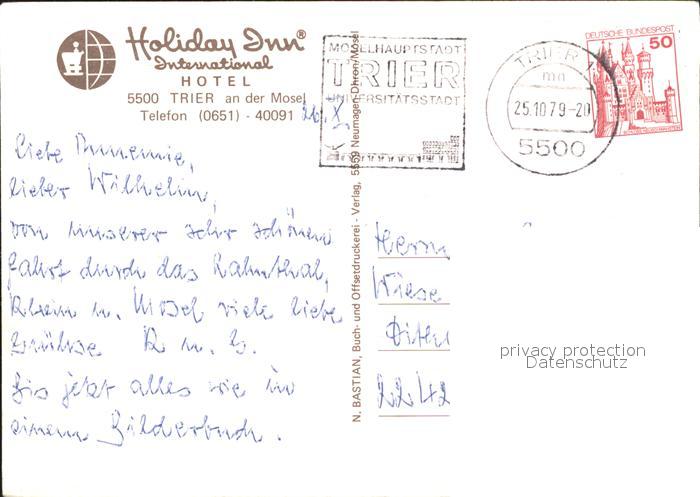 Holiday Inn®
International
HOTEL
5500 TRIER an der Mosel
Telefon (0651) - 40091
MOSELHAUPTSTADT
TRIER
UNIVERSITÄTSSTADT
TRIER 1
mn
25.10.79-20
5500
DEUTSCHE BUNDESPOST
50
Liebe Annemie,
lieber Wilhelm,
von unserer sehr schönen
Fahrt durch das Lahnthal,
Rhein u. Mosel viele liebe
Grüße R. u. G.
Bis jetzt alles wie im
einem Bilderbuch.
N. BASTIAN, Buch- und Offsetdruckerei - Verlag, 5559 Neumagen-Dhron/Mosel
Herrn
Wiese
2242
privacy protection
Datenschutz